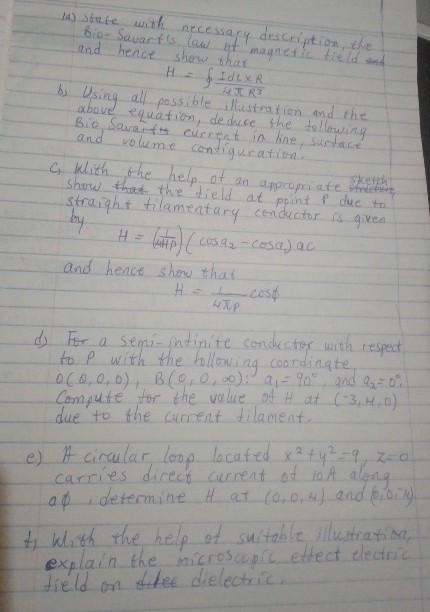 1a) State with necessary description, the
Bio-Savart's law of magnetic field and
and hence show that
H = ∮ Idl x R / 4π R³
b) Using all possible illustration and the
above equation, deduce the following
Bio Savarts current in line, surface
and volume configuration.
c) With the help of an appropriate sketch
show that the field at point P due to
straight filamentary conductor is given
by
H = (I/4πρ) (cosα₂ - cosα₁) aϕ
and hence show that
H = I/4πρ cosϕ
d) For a semi-infinite conductor with respect
to P with the following coordinate,
O(0,0,0), B(0,0,∞): α₁ = 90°, and α₂ = 0°.
Compute for the value of H at (-3,4,0)
due to the current filament.
e) A circular loop located x²+y²=9, z=0
carries direct current of 10A along
aϕ, determine H at (0,0,4) and (0,0,-4).
f) With the help of suitable illustration,
explain the microscopic effect electric
field on dielectric.